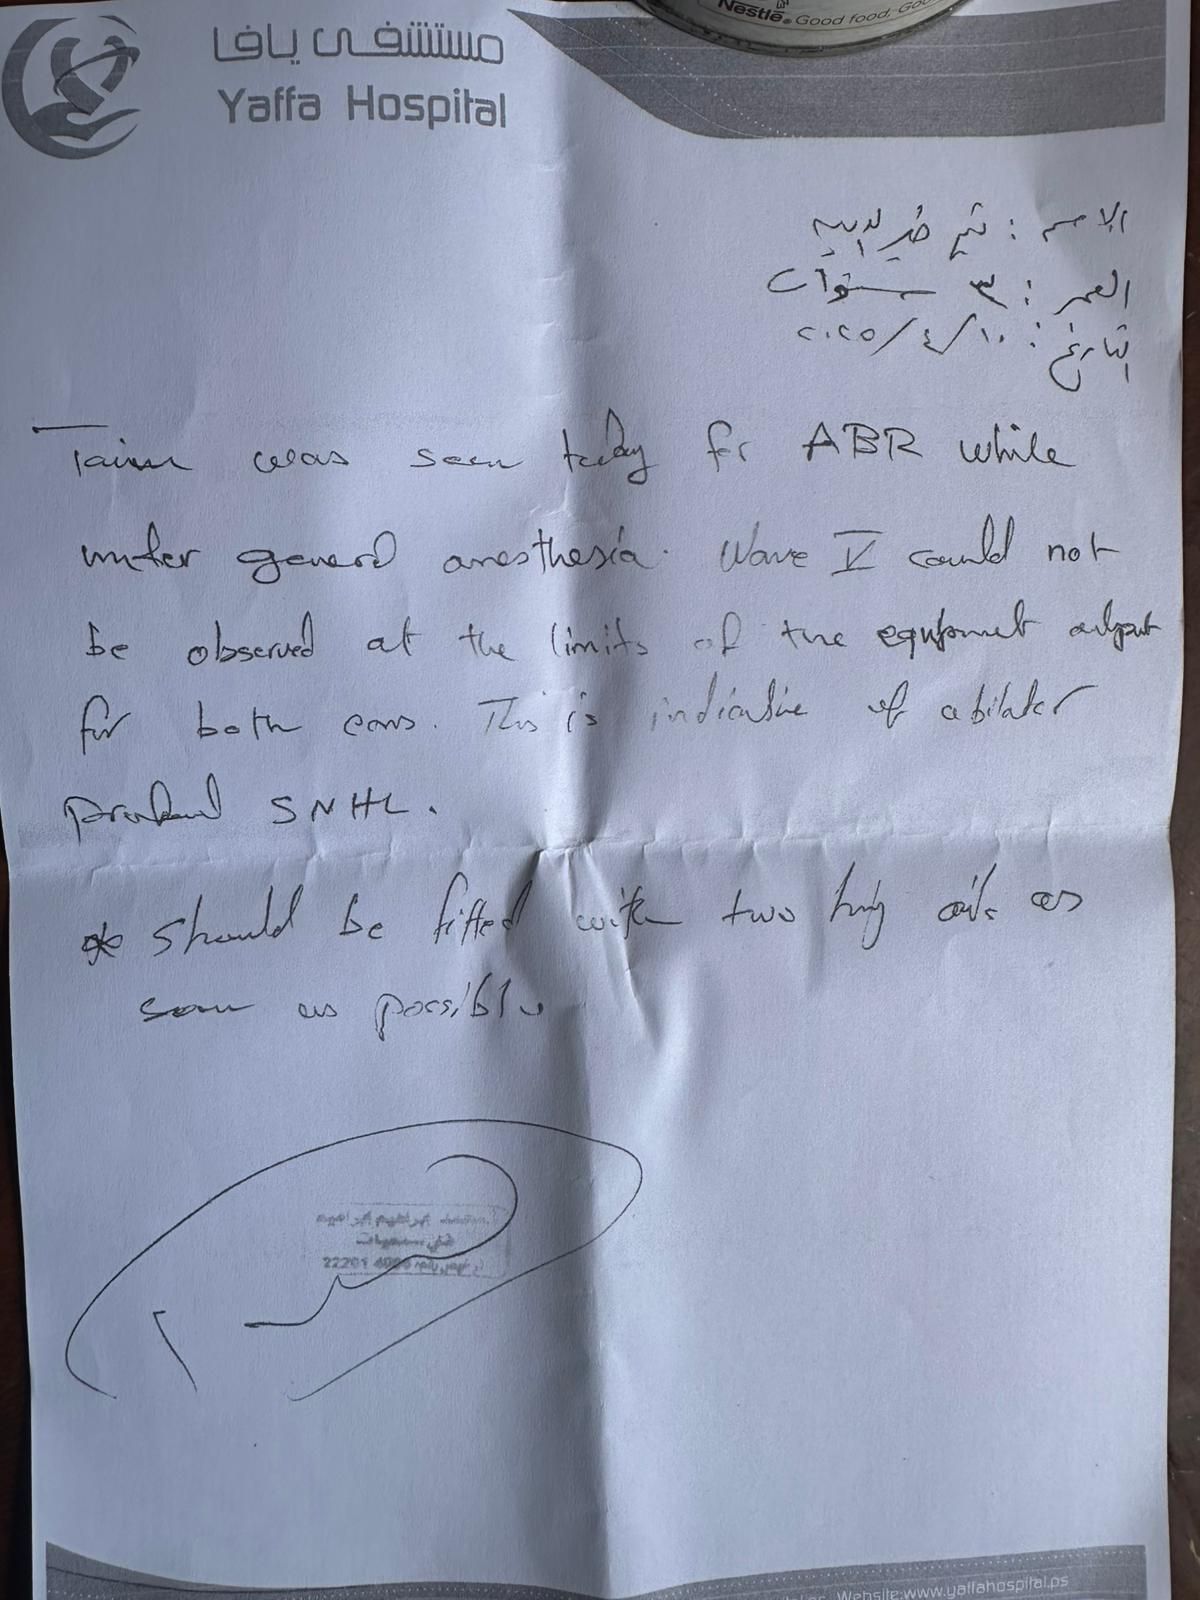 Nestlé® Good food, Goo
مستشفى يافا
Yaffa Hospital
الاسم : تيم
العمر : ٣ سنوات
التاريخ : ١٠/٤/٢٠٢٥
Taim was seen today for ABR while
under general anesthesia. Wave V could not
be observed at the limits of the equipment output
for both ears. This is indicative of a bilater
SNHL.
* should be fitted with two aids as
soon as possible
22201
Website:www.yaffahospital.ps